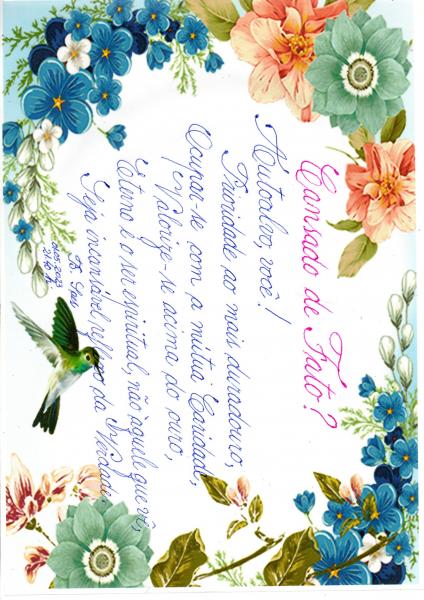 Cansado de Fato?
Autoalvo, você!
Prioridade ao mais duradouro,
Ocupar-se com a mútua Caridade,
Valorize-se acima do ouro,
Eterno é o ser espiritual, não àquele que vê,
Seja incansável reflexo da Verdade